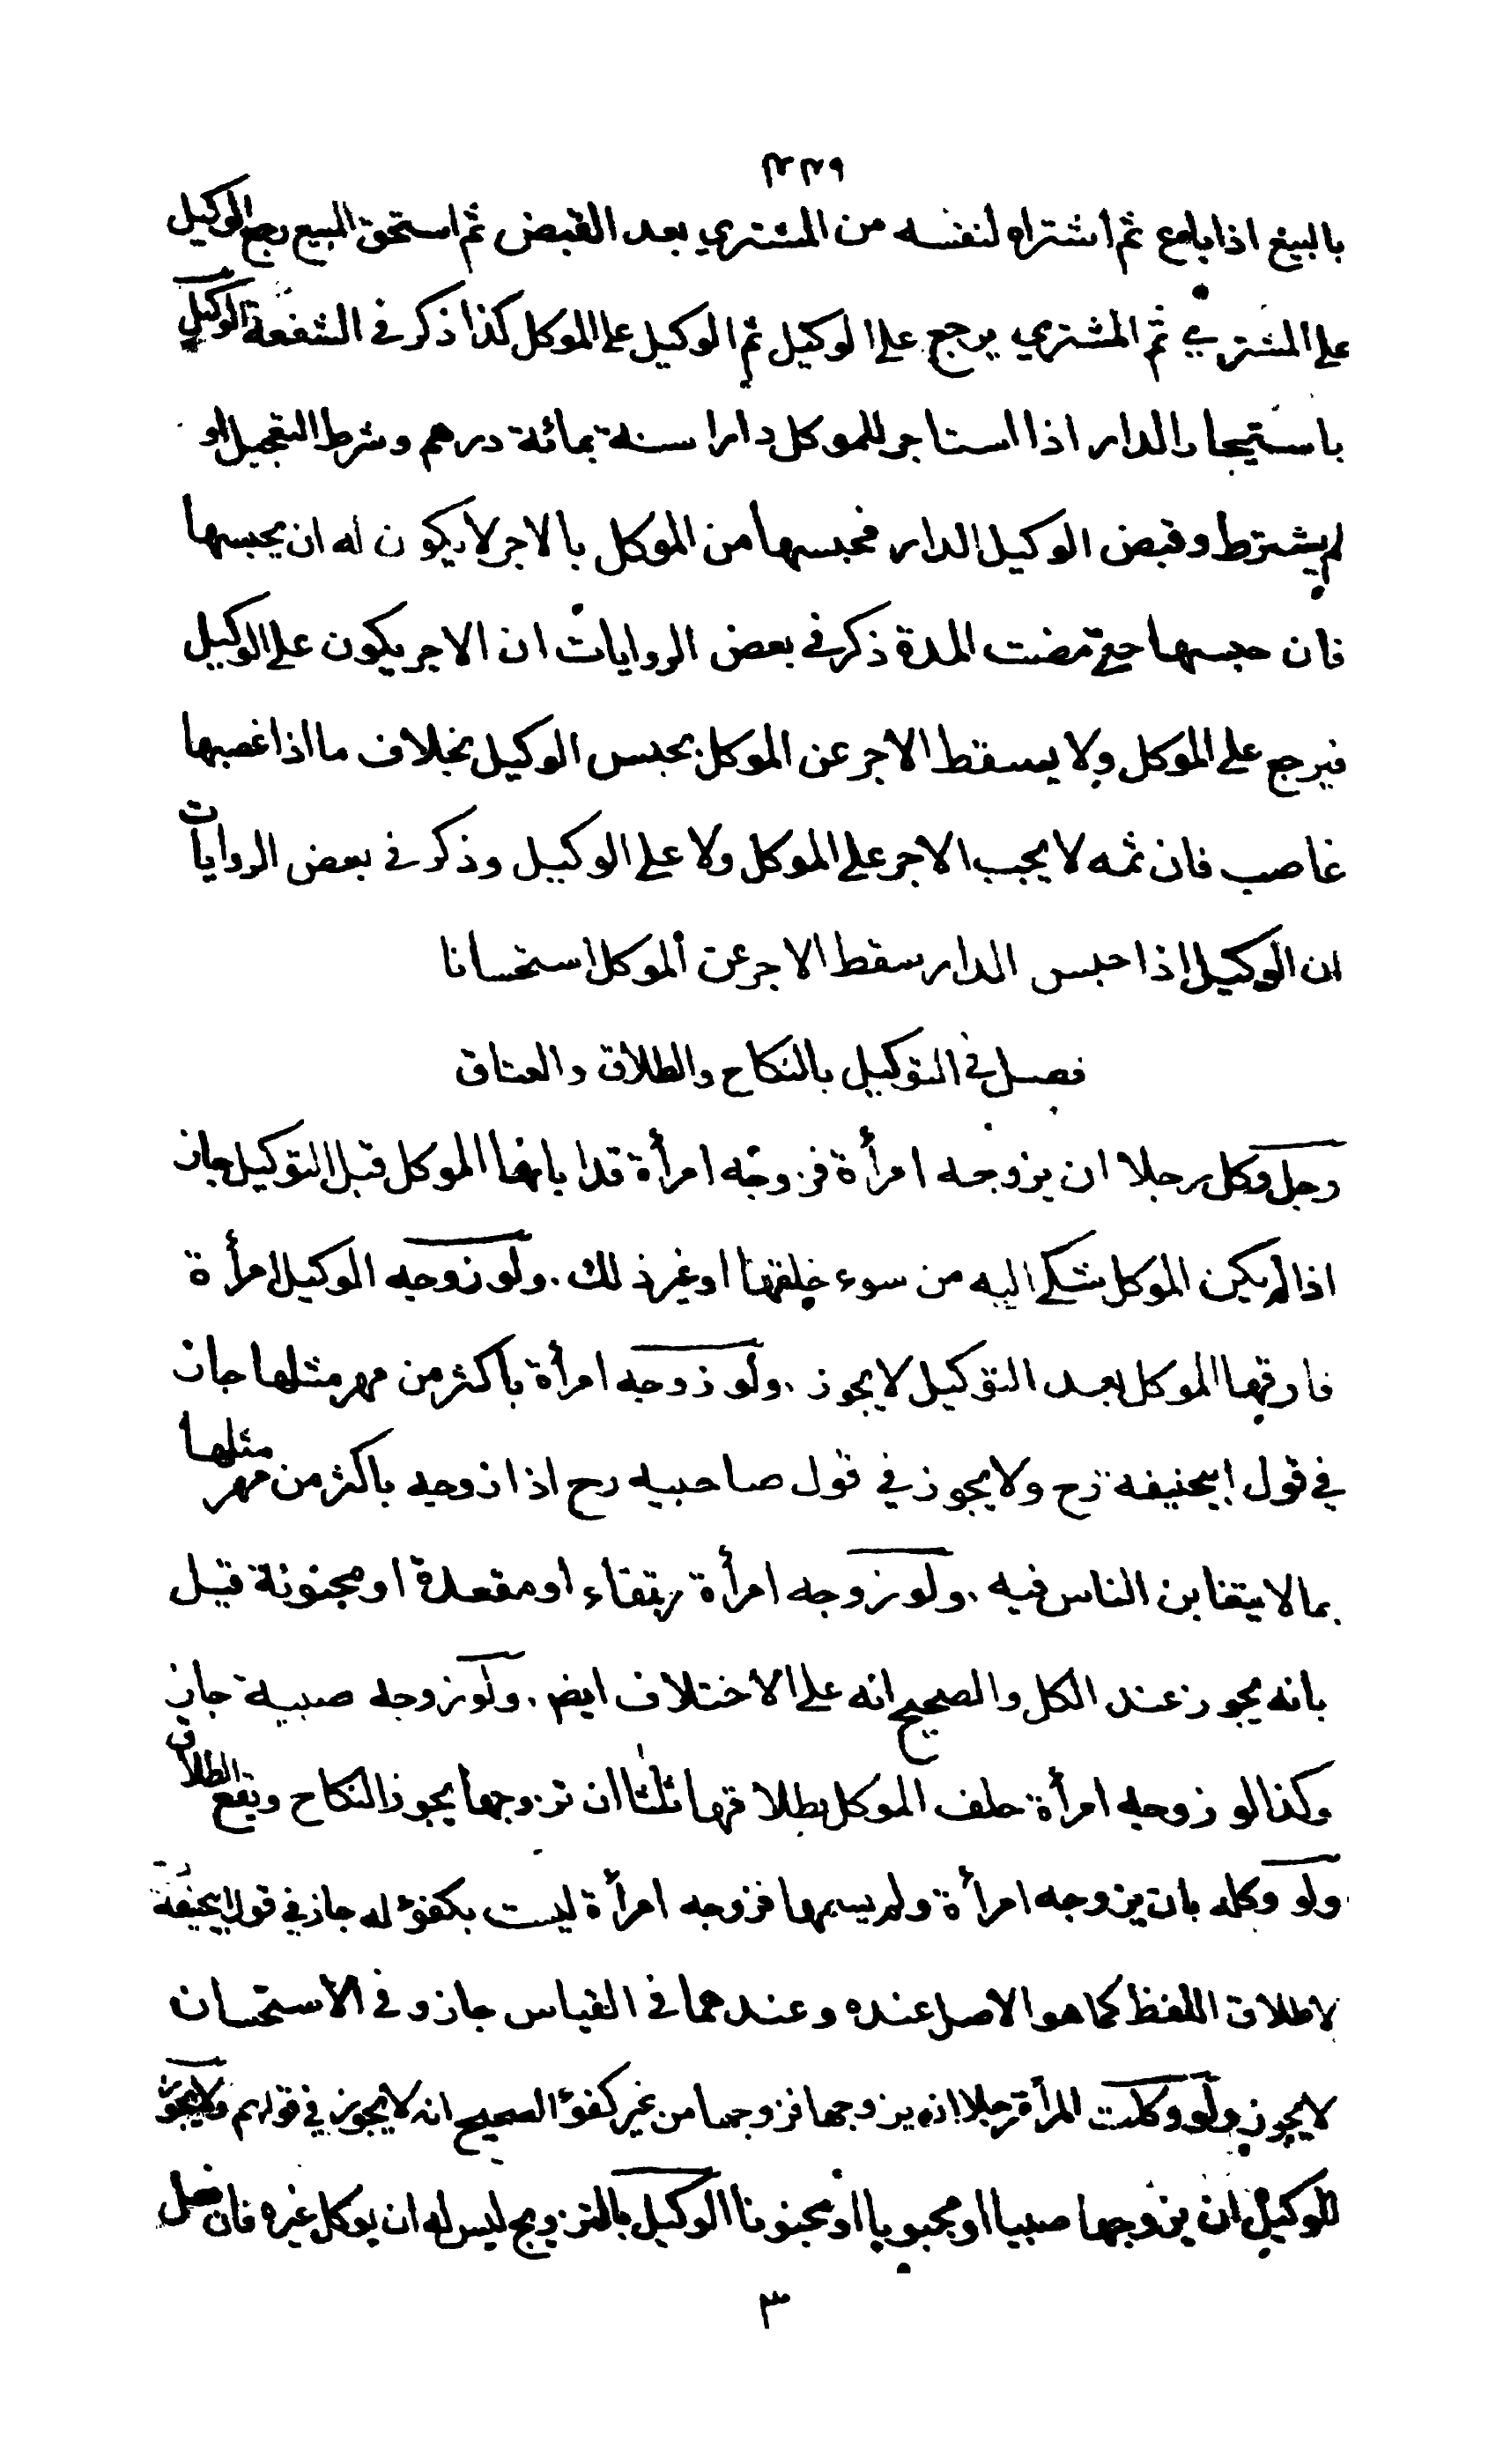 ٣٣٩
بالبيع اذا باع ثم اشتراه لنفسه من المشتري بعد القبض ثم استحق المبيع رجع الوكيل
على المشتري ثم المشتري يرجع على الوكيل ثم الوكيل على الموكل كذا ذكر في الشفعة الوكيل
باستيجار الدار اذا استاجر للموكل دارا سنة بمائة درهم وشرط التعجيل او
لم يشترط وقبض الوكيل الدار فحبسها من الموكل بالاجر لا يكون له ان يحبسها
فان حبسها حتى مضت المدة ذكر في بعض الروايات ان الاجر يكون على الوكيل
فيرجع على الموكل ولا يسقط الاجر عن الموكل بحبس الوكيل بخلاف ما اذا غصبها
غاصب فان ثمه لا يجب الاجر على الموكل ولا على الوكيل وذكر في بعض الروايات
ان الوكيل اذا حبس الدار سقط الاجر عن الموكل استحسانا
فصل في التوكيل بالنكاح والطلاق والعتاق
رجل وكل رجلا ان يزوجه امرأة فزوجه امرأة قد ابانها الموكل قبل التوكيل جاز
اذا لم يكن الموكل شكى اليه من سوء خلقها او غير ذلك . ولو زوجه الوكيل امرأة
فارقها الموكل بعد التوكيل لا يجوز . ولو زوجه امرأة باكثر من مهر مثلها جاز
في قول ابيحنيفة رح ولا يجوز في قول صاحبيه رح اذا زوجه باكثر من مهر مثلها
بما لا يتغابن الناس فيه . ولو زوجه امرأة رتقاء او مقعدة او مجنونة قيل
بانه يجوز عند الكل والصحيح انه على الاختلاف ايض . ولو زوجه صبية جاز
وكذا لو زوجه امرأة حلف الموكل بطلاقها ثلثا ان تزوجها يجوز النكاح ويقع الطلاق
ولو وكله بان يزوجه امرأة ولم يسمها فزوجه امرأة ليست بكفؤ له جاز في قول ابيحنيفة رح
لاطلاق اللفظ كما هو الاصل عنده وعندهما في القياس جاز وفي الاستحسان
لا يجوز ولو وكلت المرأة رجلا ان يزوجها فزوجها من غير كفؤ الصحيح انه لا يجوز في قولهم ولا يجوز
للوكيل ان يزوجها صبيا او مجبوبا او مجنونا الوكيل بالتزويج ليس له ان يوكل غيره فان فعل
٣